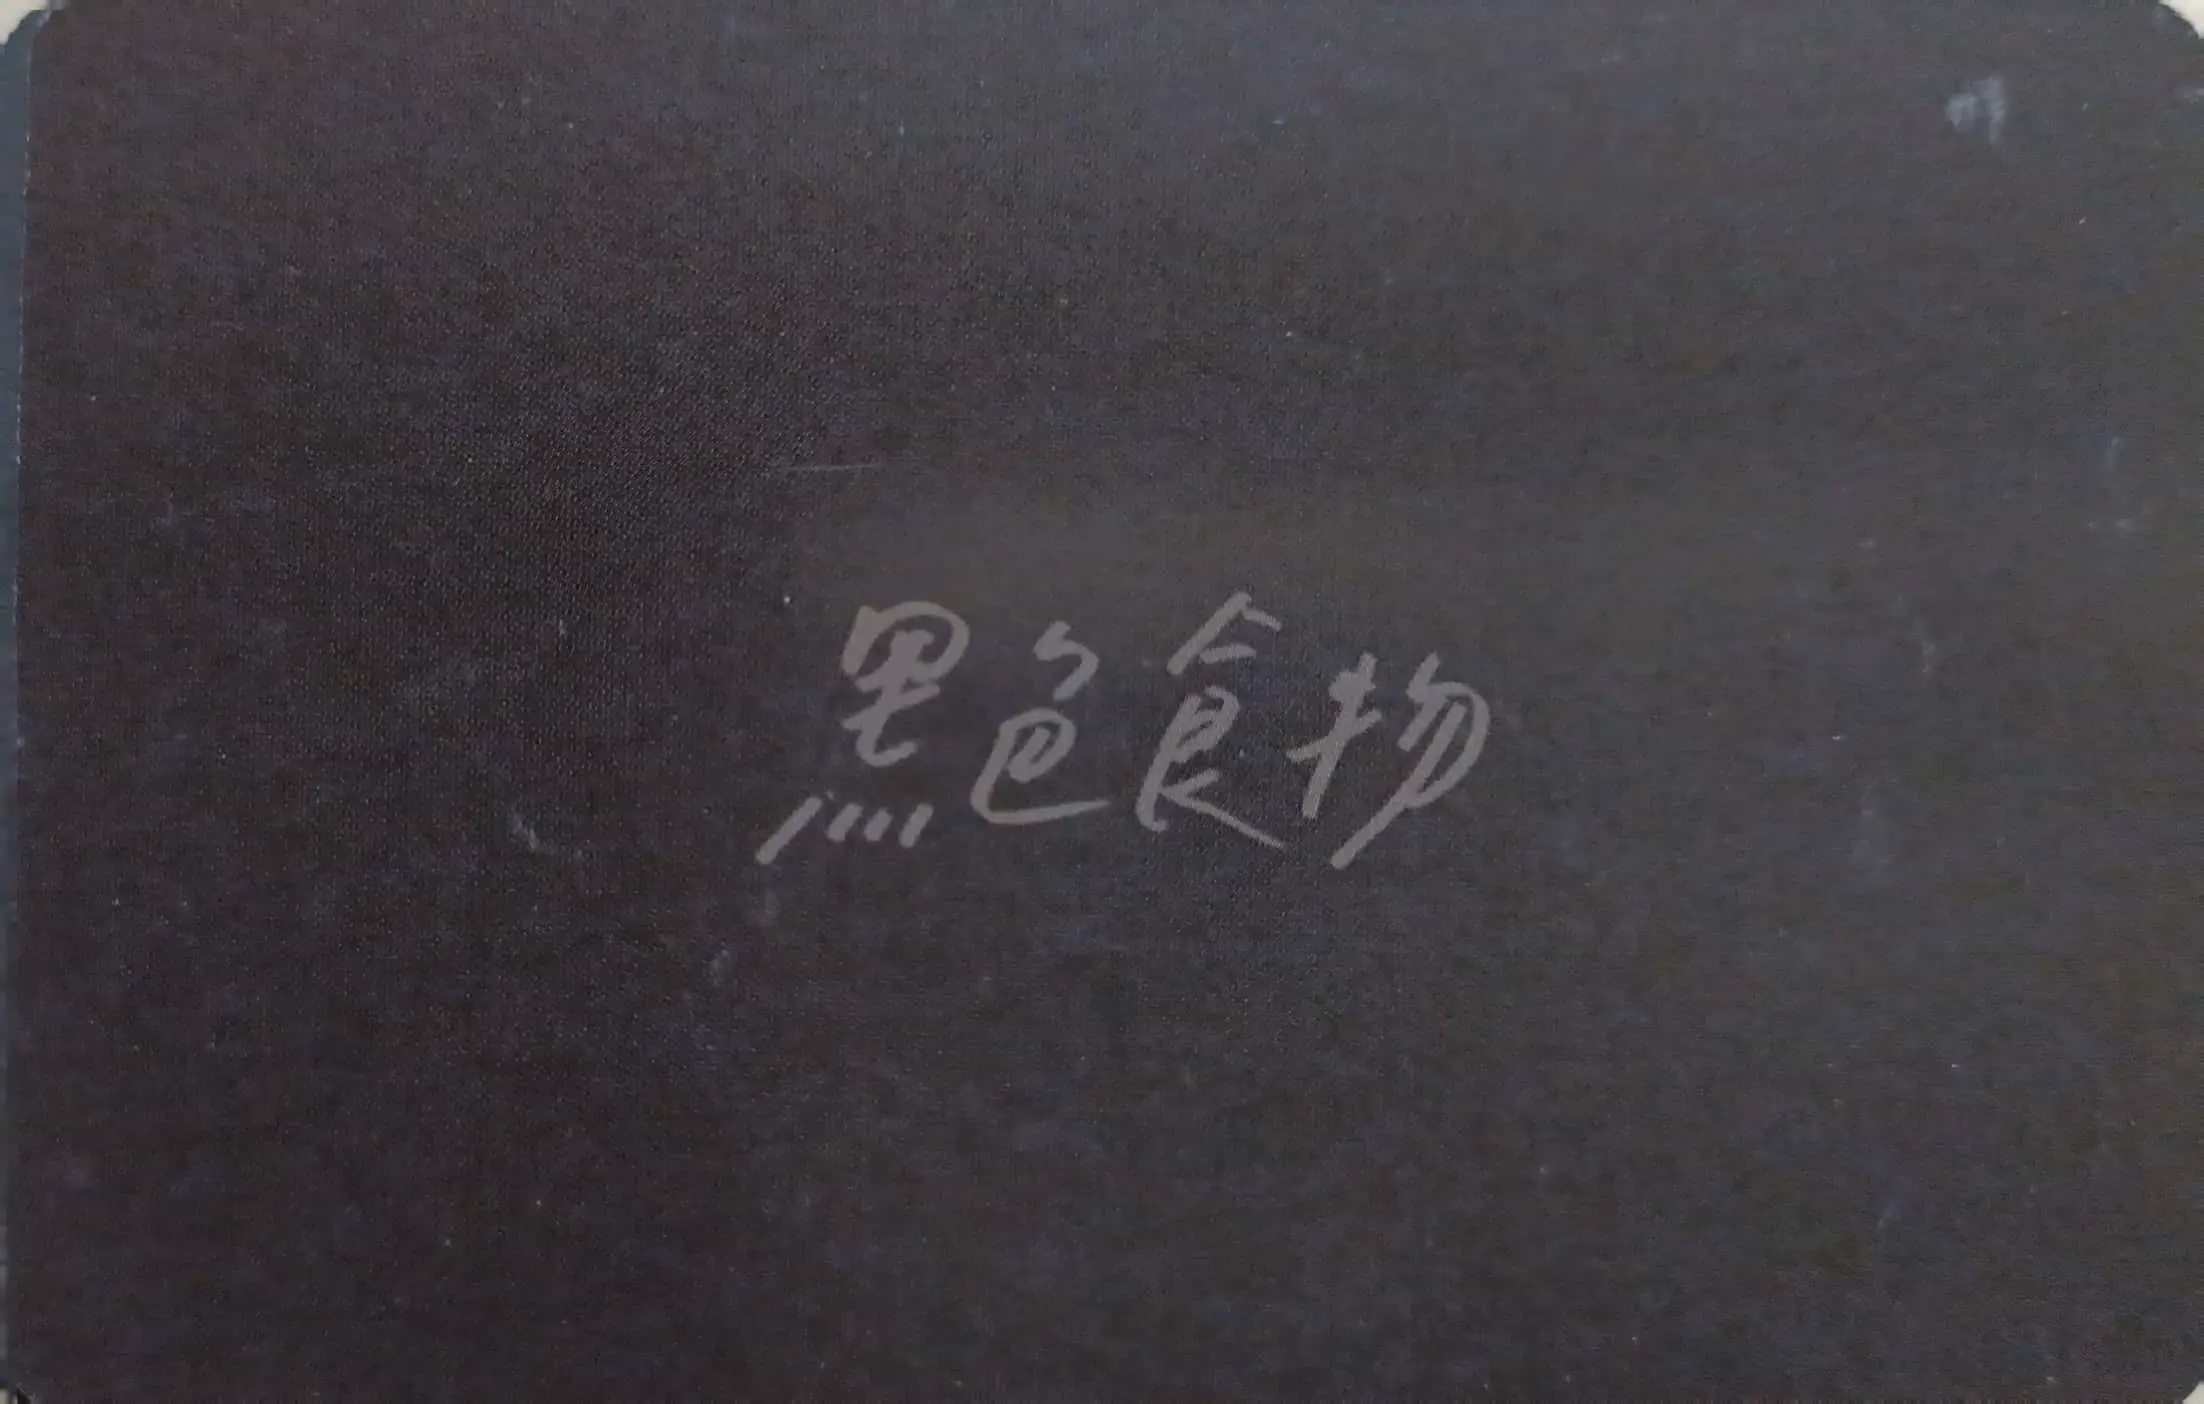 黑色食物